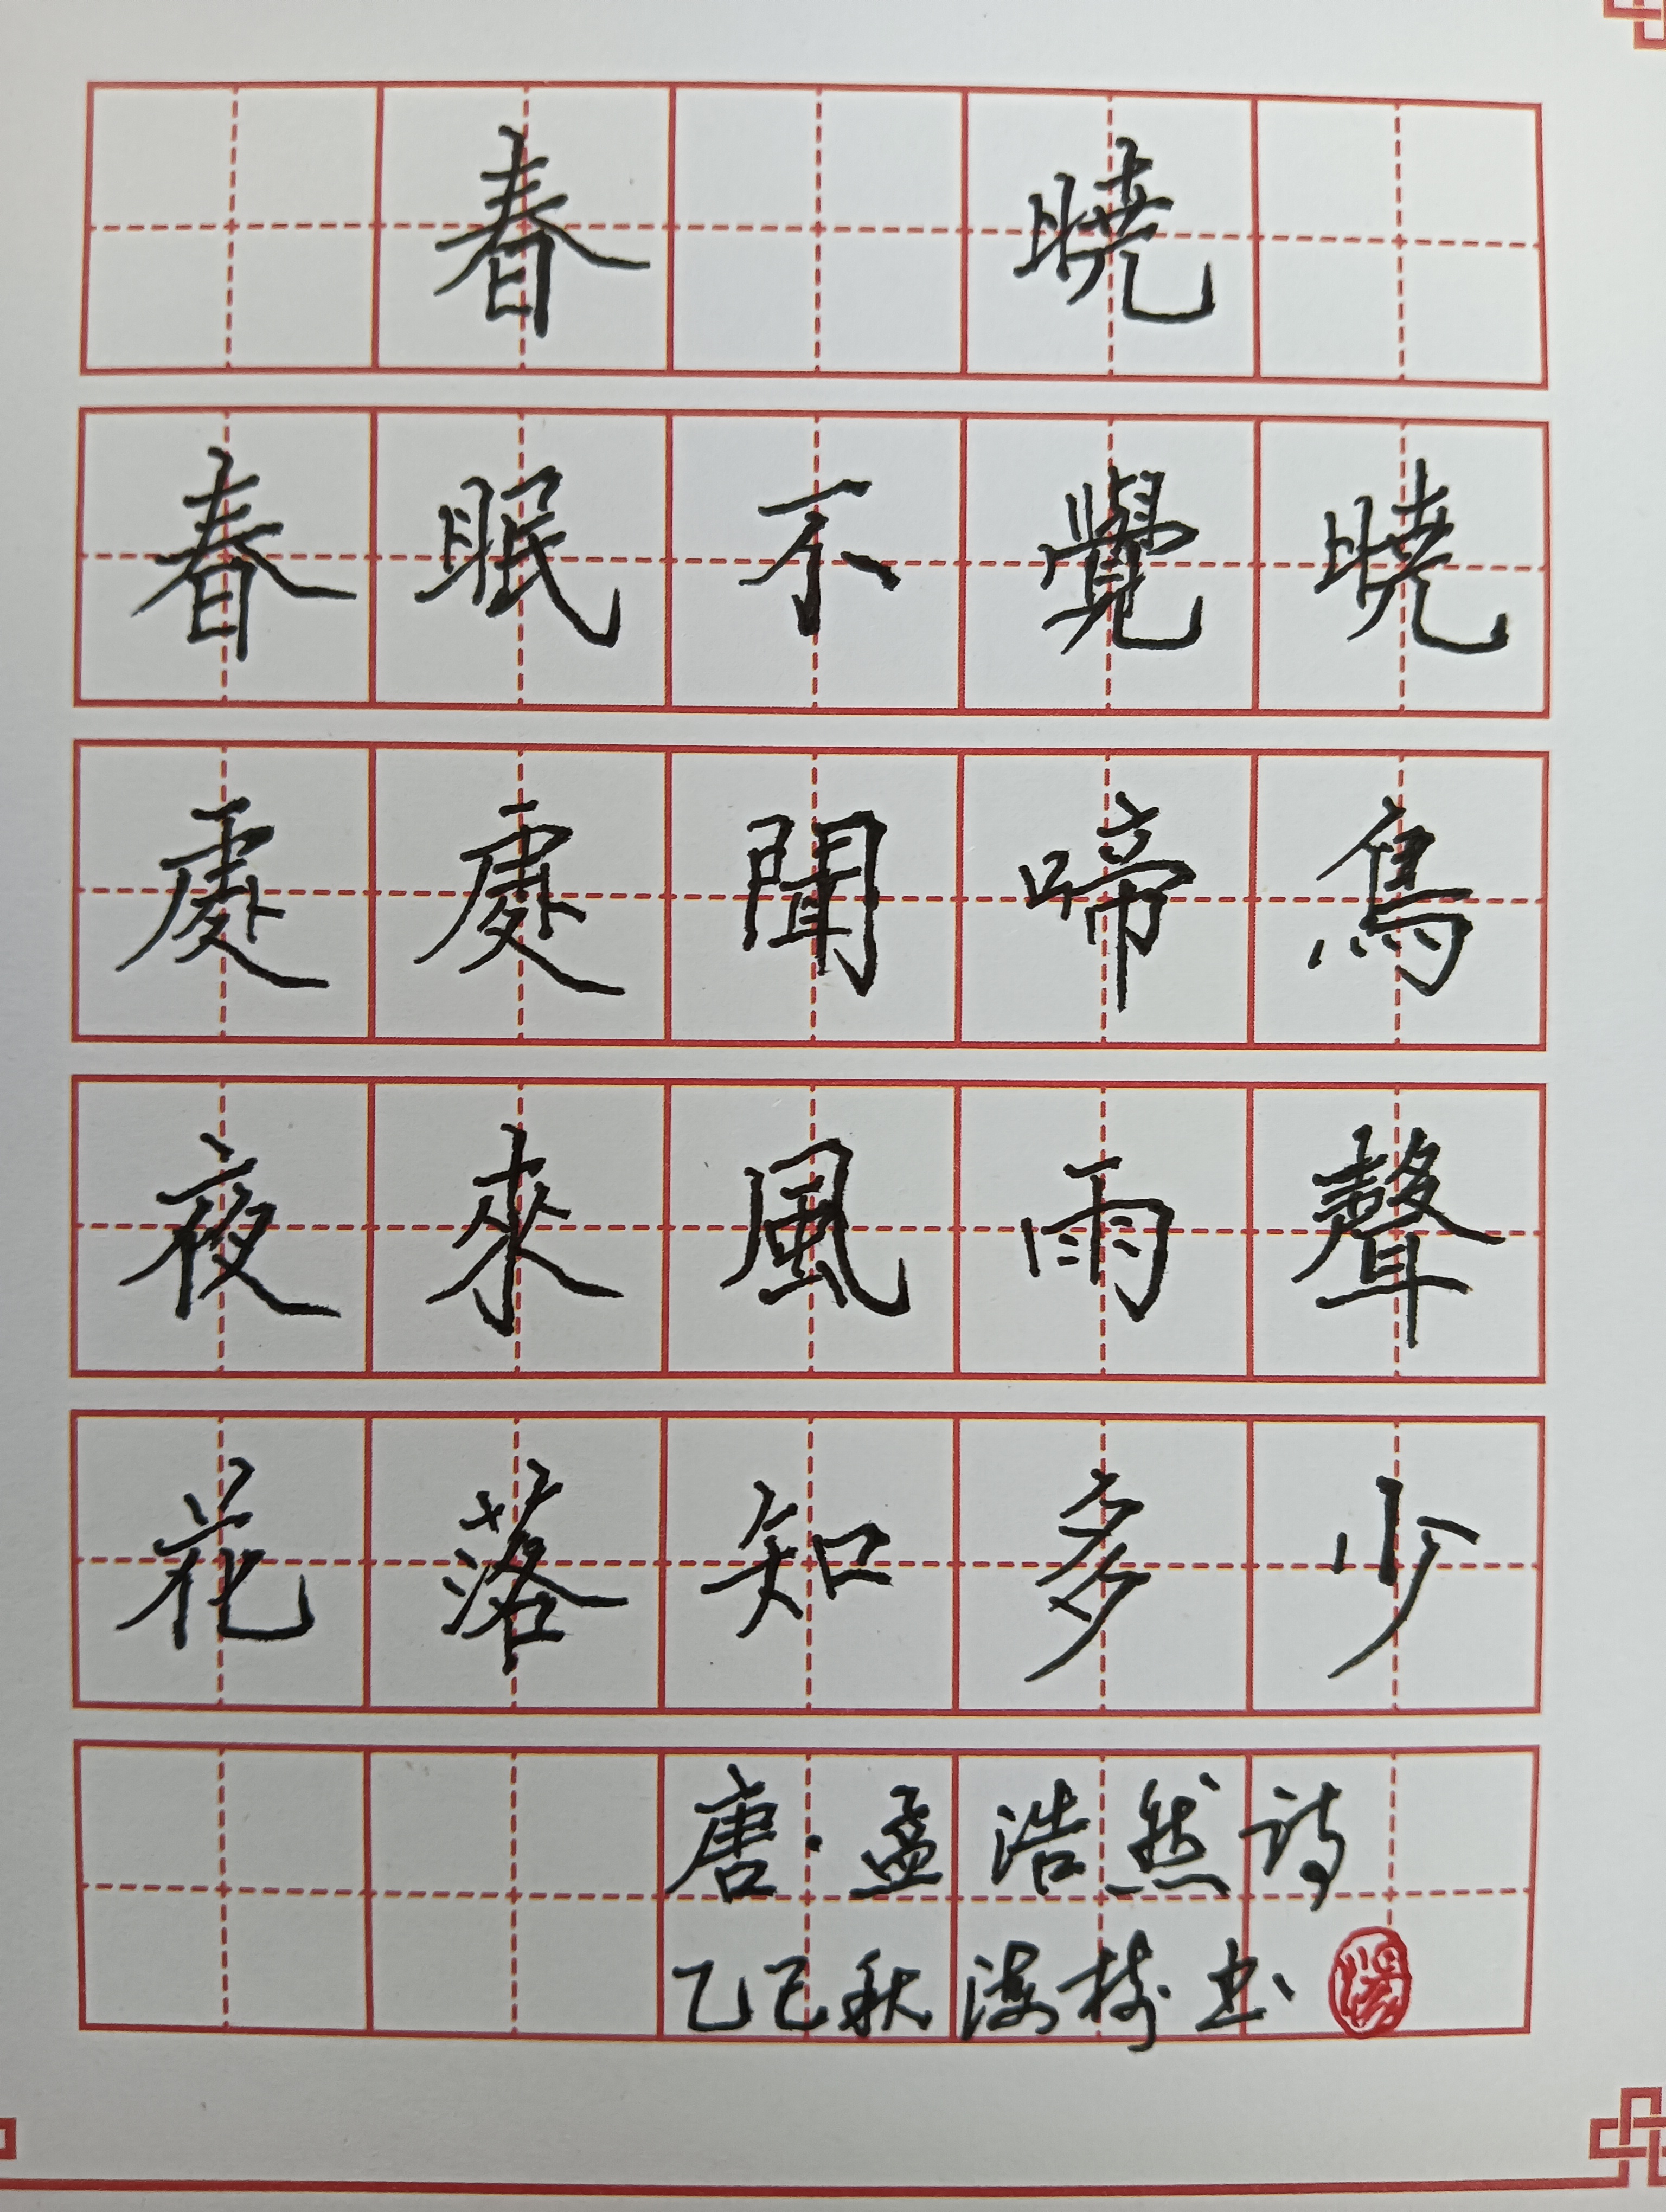 春曉
春眠不覺曉
處處聞啼鳥
夜來風雨聲
花落知多少
唐·孟浩然詩
乙巳秋海樹书